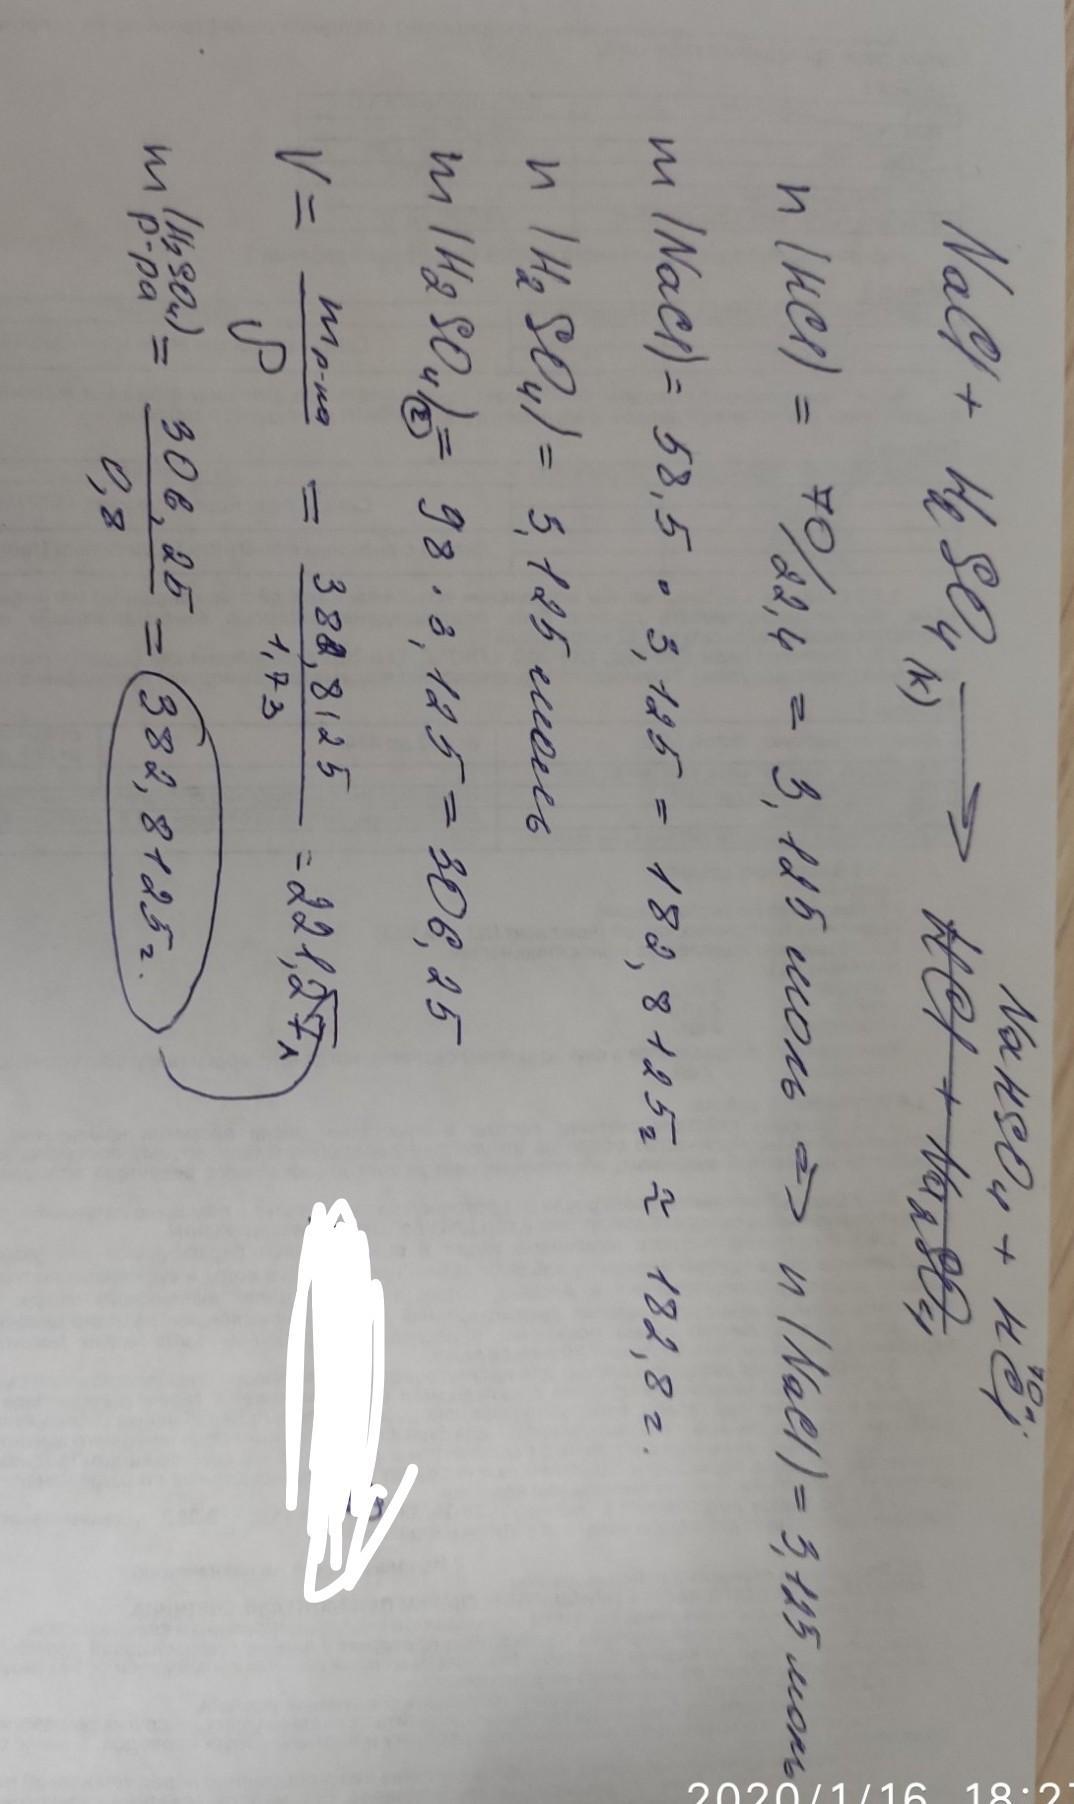 NaHSO4 + HCl
70 л.
NaCl + H2SO4 (к) → HCl + Na2SO4
n (HCl) = 70/22,4 = 3,125 моль => n (NaCl) = 3,125 моль
m (NaCl) = 58,5 · 3,125 = 182,8125 г ≈ 182,8 г.
n (H2SO4) = 3,125 моль
m (H2SO4) = 98 · 3,125 = 306,25
V = m р-ра / ρ = 382,8125 / 1,73 = 221,27 л
m р-ра (H2SO4) = 306,25 / 0,8 = 382,8125 г.
2020/1/16 18:27